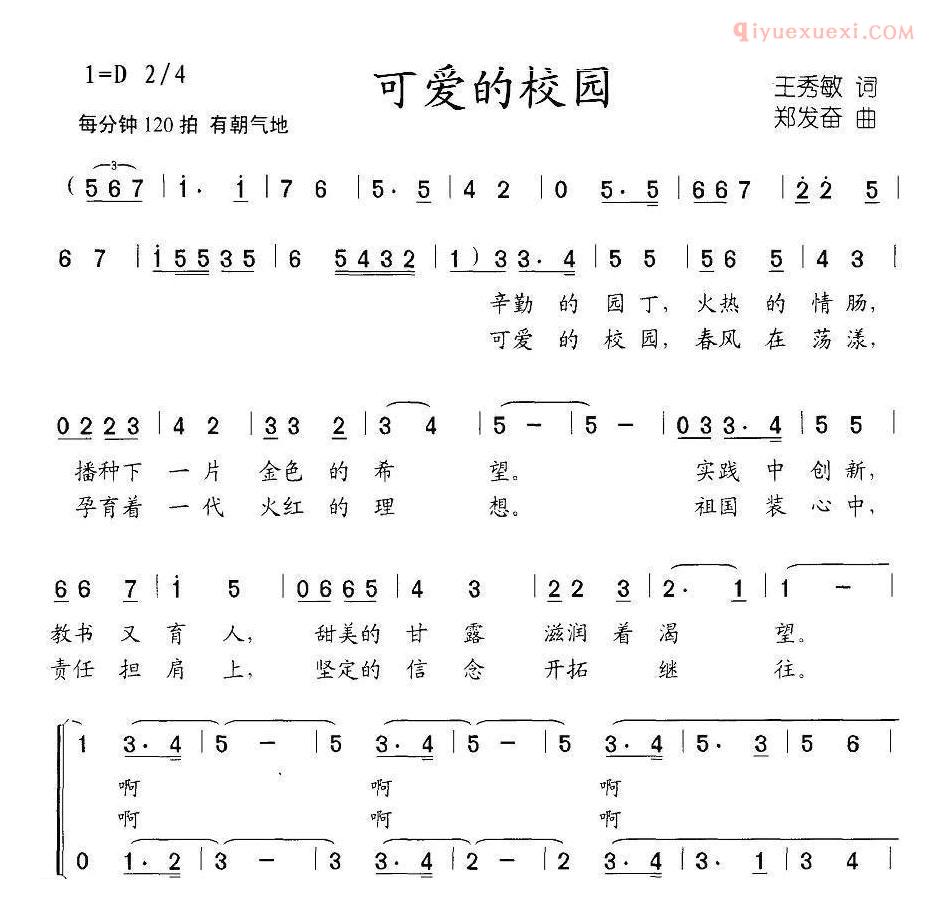 qiyuexuexi.COM
1=D 2/4 可爱的校园 王秀敏 词
每分钟 120 拍 有朝气地 郑发奋 曲
3
( 5 6 7 | i · i | 7 6 | 5 · 5 | 4 2 | 0 5 · 5 | 6 6 7 | 2̇ 2̇ 5 |
6 7 | i 5 5 3 5 | 6 5 4 3 2 | 1 ) 3 3 · 4 | 5 5 | 5 6 5 | 4 3 |
辛勤 的 园丁, 火热 的 情肠,
可爱 的 校园, 春风 在 荡漾,
0 2 2 3 | 4 2 | 3 3 2 | 3 4 | 5 – | 5 – | 0 3 3 · 4 | 5 5 |
播种下 一片 金色 的 希 望。 实践 中 创新,
孕育着 一代 火红 的 理 想。 祖国 装 心中,
6 6 7 | i 5 | 0 6 6 5 | 4 3 | 2 2 3 | 2 · 1 | 1 – |
教书 又 育 人, 甜美的 甘 露 滋润 着 渴 望。
责任 担 肩 上, 坚定的 信 念 开拓 继 往。
1 3 · 4 | 5 – | 5 3 · 4 | 5 – | 5 3 · 4 | 5 · 3 | 5 6 |
啊 啊 啊
啊 啊 啊
0 1 · 2 | 3 – | 3 3 · 4 | 2 – | 2 3 · 4 | 3 · 1 | 3 4 |